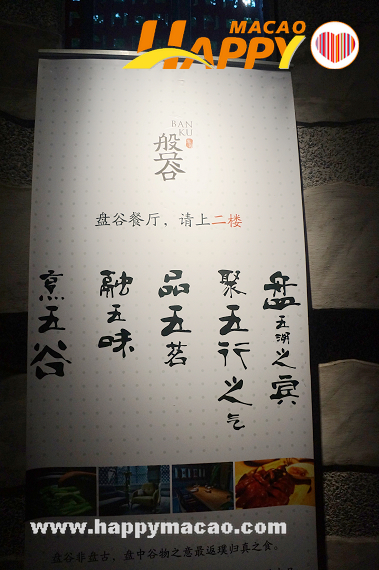 MACAO
HAPPY
BAN
KU
般
谷
盘谷餐厅，请上二楼
盘五湖之宾
聚五行之气
品五茗
融五味
烹五谷
www.happymacao.com
盘谷非盘古，盘中谷物之意最返璞归真之食。